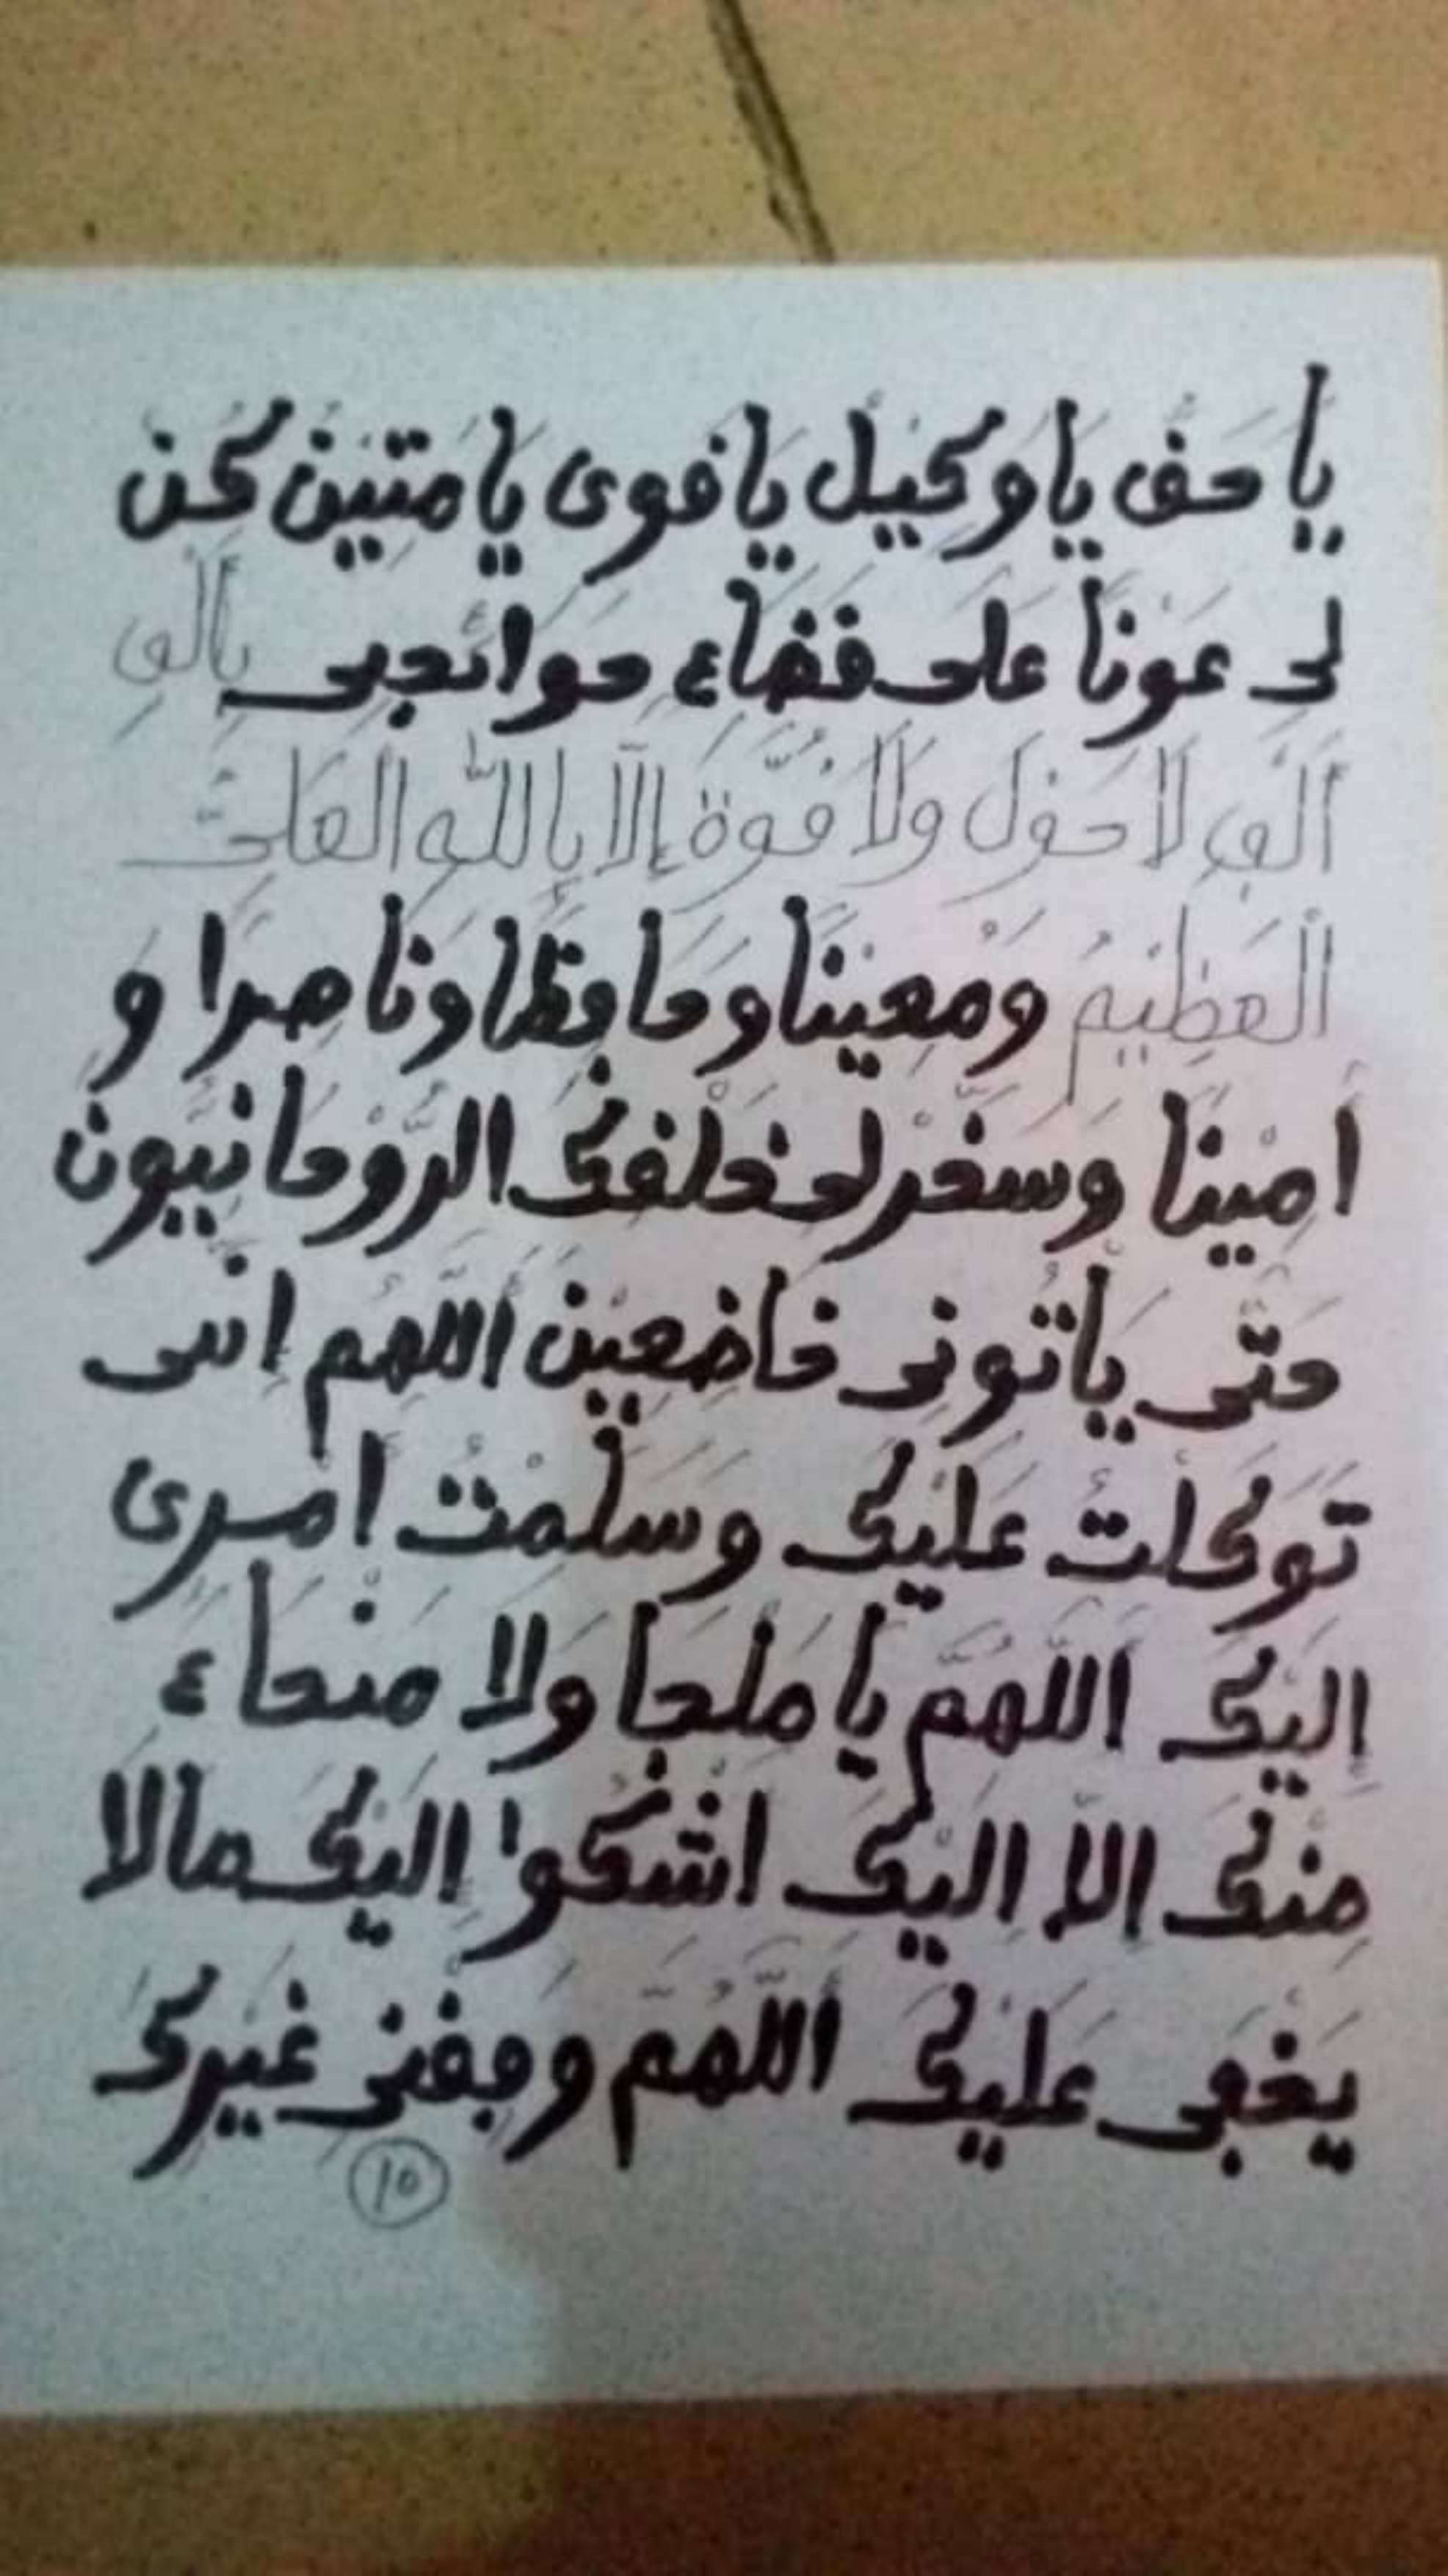 يا حق يا وكيل يا قوى يا متين كن
لى عونا على قضاء حوائجى بألف
ألف لا حول ولا قوة إلا بالله العلى
العظيم ومعينا وحافظا وناصرا و
أمينا وسخر لى خلقك الروحانيون
حتى يأتونى خاضعين اللهم إنى
توكلت عليك وسلمت أمرى
إليك اللهم يا ملجا ولا منجاء
منك إلا إليك اشكوا إليك مالا
يخفى عليك اللهم وفقنى غيرك
١٥